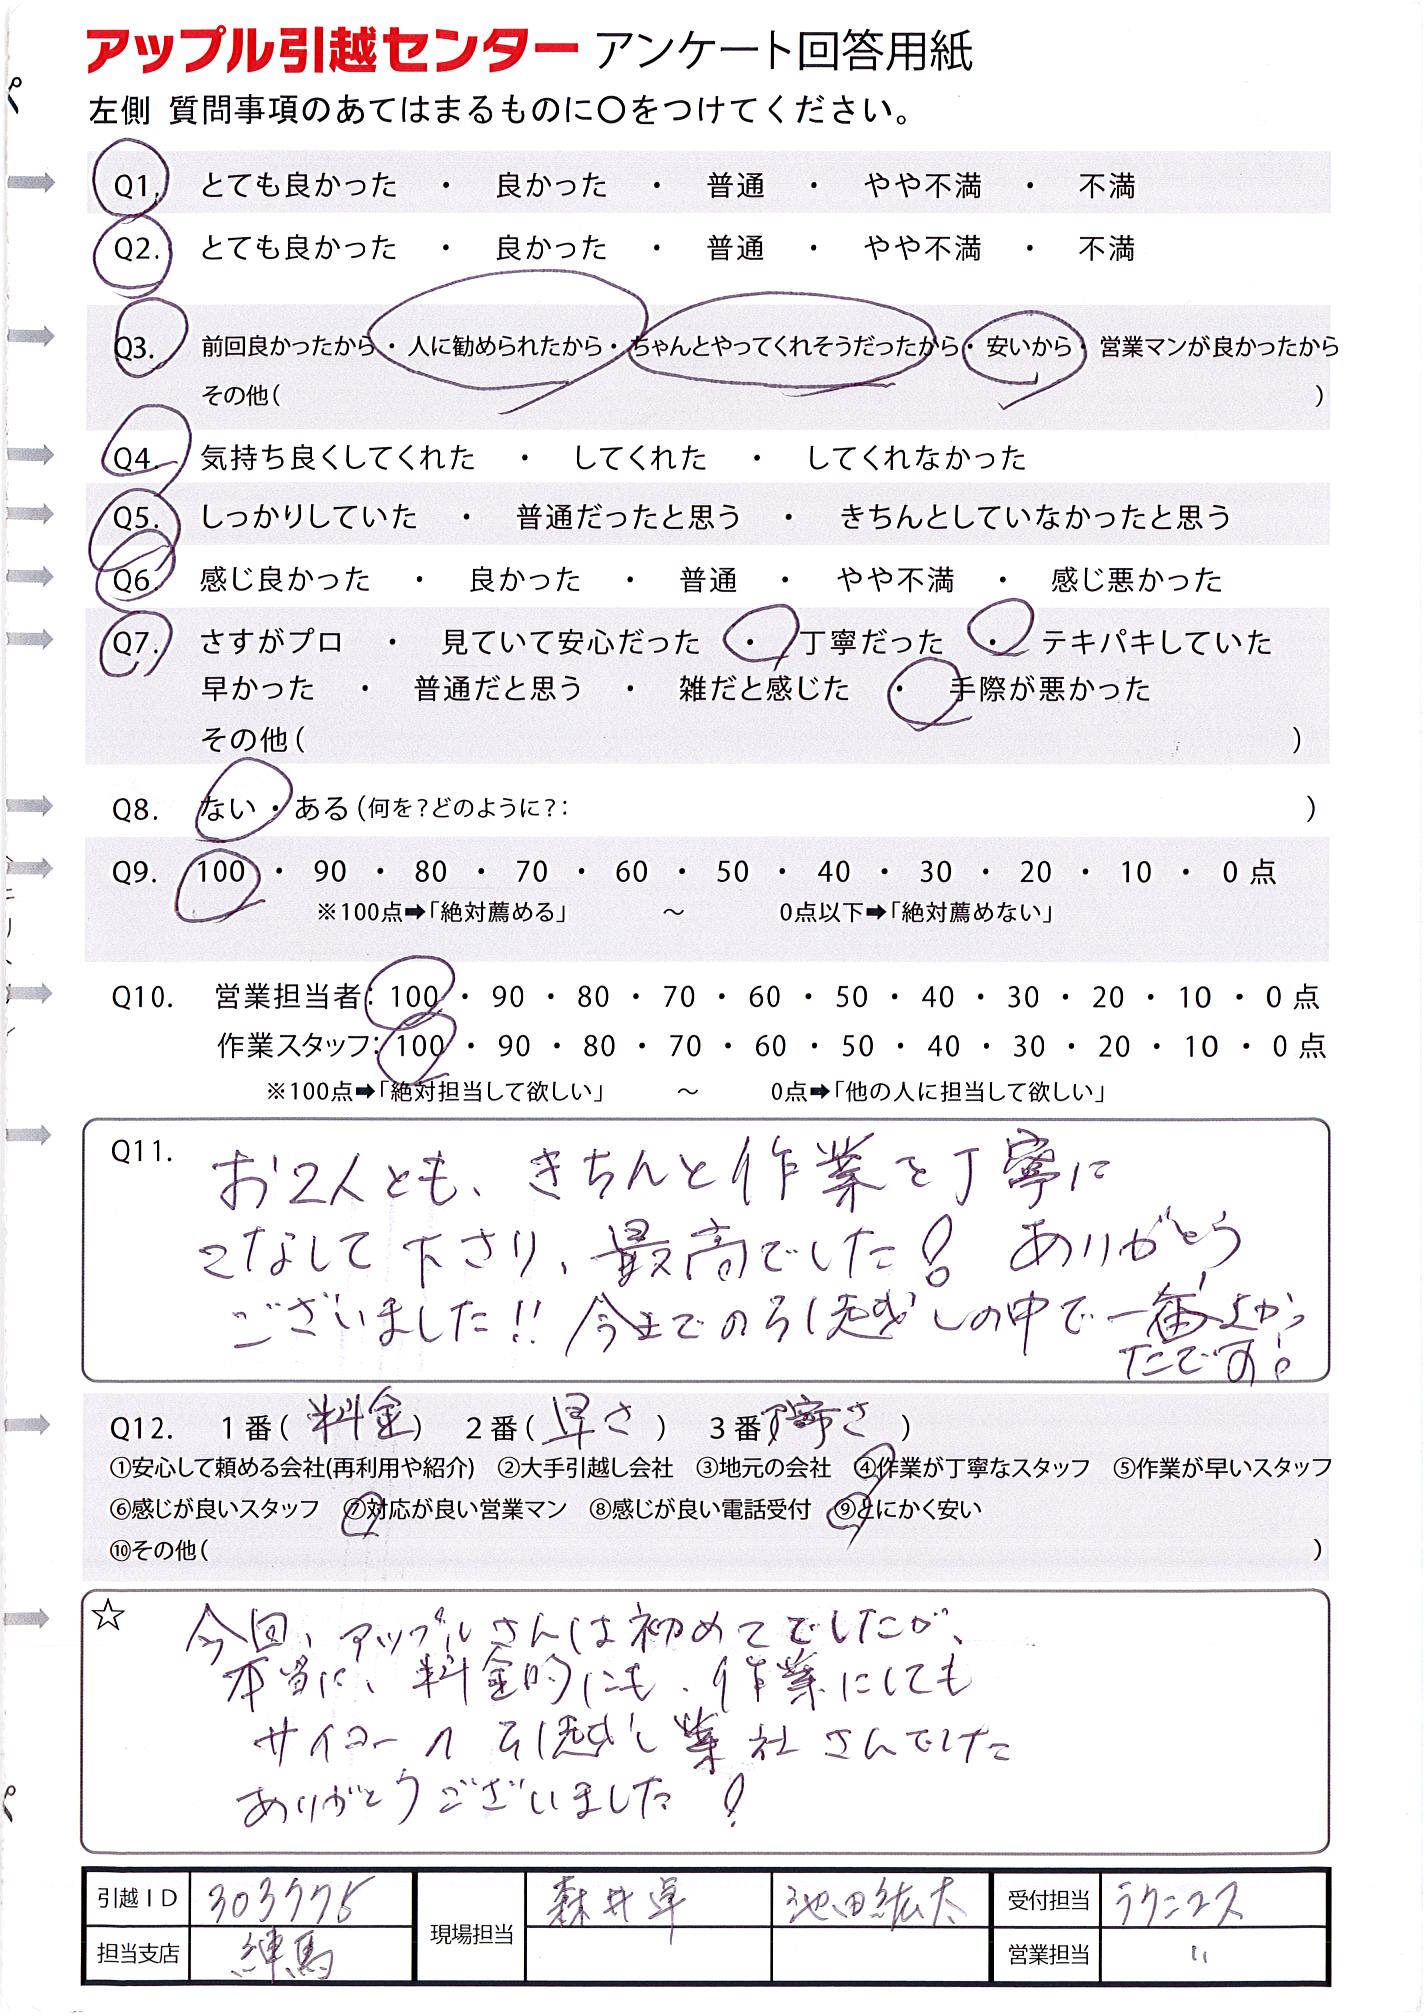 アップル引越センター アンケート回答用紙
左側 質問事項のあてはまるものに〇をつけてください。
Q1. とても良かった ・ 良かった ・ 普通 ・ やや不満 ・ 不満
Q2. とても良かった ・ 良かった ・ 普通 ・ やや不満 ・ 不満
Q3. 前回良かったから・人に勧められたから・ちゃんとやってくれそうだったから・安いから・営業マンが良かったから
その他( )
Q4. 気持ち良くしてくれた ・ してくれた ・ してくれなかった
Q5. しっかりしていた ・ 普通だったと思う ・ きちんとしていなかったと思う
Q6. 感じ良かった ・ 良かった ・ 普通 ・ やや不満 ・ 感じ悪かった
Q7. さすがプロ ・ 見ていて安心だった ・ 丁寧だった ・ テキパキしていた
早かった ・ 普通だと思う ・ 雑だと感じた ・ 手際が悪かった
その他( )
Q8. ない・ある(何を?どのように?: )
Q9. 100 ・ 90 ・ 80 ・ 70 ・ 60 ・ 50 ・ 40 ・ 30 ・ 20 ・ 10 ・ 0 点
※100点➡「絶対薦める」 ～ 0点以下➡「絶対薦めない」
Q10. 営業担当者: 100 ・ 90 ・ 80 ・ 70 ・ 60 ・ 50 ・ 40 ・ 30 ・ 20 ・ 10 ・ 0 点
作業スタッフ: 100 ・ 90 ・ 80 ・ 70 ・ 60 ・ 50 ・ 40 ・ 30 ・ 20 ・ 10 ・ 0 点
※100点➡「絶対担当して欲しい」 ～ 0点➡「他の人に担当して欲しい」
Q11. お2人とも、きちんと作業を丁寧に
こなして下さり、最高でした! ありがとう
ございました!! 今までの引越しの中で一番よかっ
たです!
Q12. 1番( 料金 ) 2番( 早さ ) 3番( 丁寧さ )
①安心して頼める会社(再利用や紹介) ②大手引越し会社 ③地元の会社 ④作業が丁寧なスタッフ ⑤作業が早いスタッフ
⑥感じが良いスタッフ ⑦対応が良い営業マン ⑧感じが良い電話受付 ⑨とにかく安い
⑩その他( )
☆ 今回、アップルさんは初めてでしたが、
本当に、料金的にも、作業にしても
サイコーの引越し業社さんでした
ありがとうございました!
引越ID 303775 現場担当 森井卓 池田紘太 受付担当 ラクニコス
担当支店 練馬 営業担当 〃